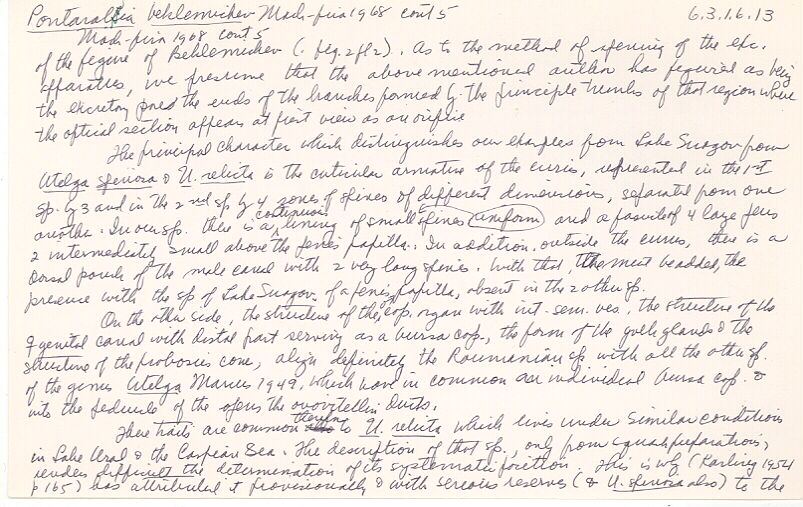 Pontaralia beklemichev Mack-fira 1968 cont 5 6.3.1.6.13
Mack-fira 1968 cont 5
of the figure of Beklemichev (. fig. 2 pl 2). As to the method of opening of the exc.
apparatus, we presume that the above mentioned author has figured as being
the excretory pore the ends of the branches formed by the principle trunks of that region where
the optical section appears at first view as an orifice
The principal character which distinguishes our examples from Lake Suagov from
Utelga spinosa & U. relicta is the cuticular armature of the cirrus, represented in the 1st
sp. by 3 and in the 2nd sp by 4 zones of spines of different dimensions, separated from one
another. In our sp. there is a continuous lining of small spines (uniform) and a of 4 large
2 intermediately small above the penis papilla. In addition, outside the cirrus, there is a
dorsal pouch of the male canal with 2 very long spines. With that, must be added, the
presence with the sp of Lake Suagov of a penis papilla, absent in the 2 other sp.
On the other side, the structure of the cop. organ with int. sem. ves, the structure of the
♀ genital canal with distal part serving as a bursa cop., the form of the yolk glands & the
structure of the proboscis cone, align definitely the Roumanian sp with all the other sp.
of the genus Utelga Marcus 1949, which have in common an individual bursa cop. &
into the peduncle of the opens the ovovitellin ducts.
These traits are common to U. relicta which lives under similar conditions
in Lake Aral & the Caspean Sea. The description of that sp., only from squash preparations,
renders difficult the determination of its systematic position. This is why (Karling 1954
p 165) has attributed it provisionally & with serious reserves (& U. spinosa also) to the